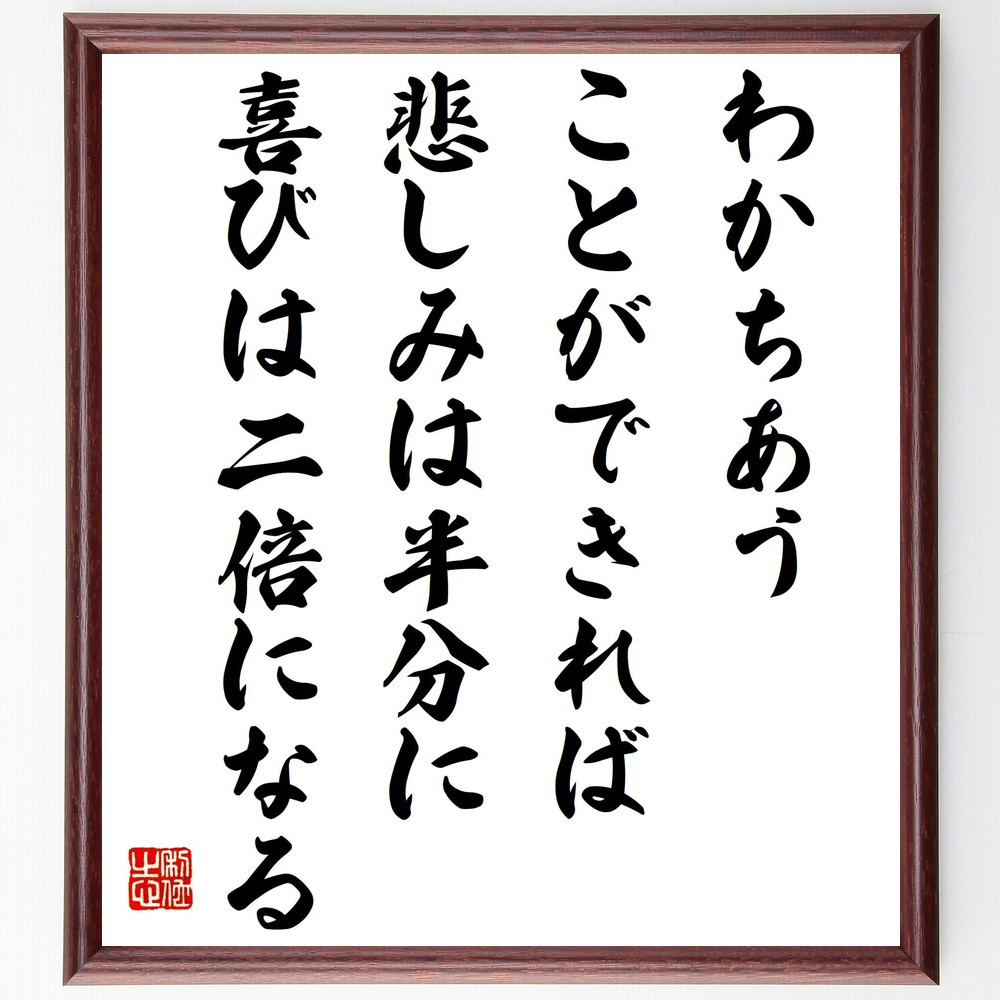 わかちあう
ことができれば
悲しみは半分に
喜びは二倍になる